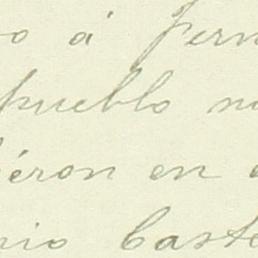 o á fern
pueblo n
éron en
nio Caste